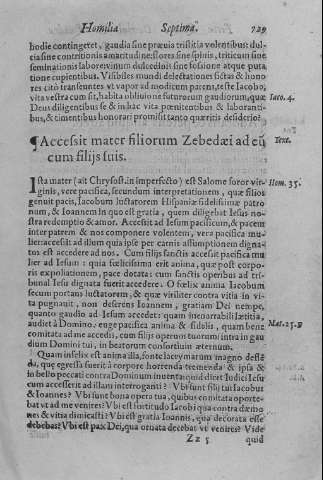 Homilia Septima. 729
hodie contingeret, gaudia sine præuia tristitia volentibus: dul-
cia sine contritionis amaritudine: flores sine spinis, triticum sine
seminationis labore: vinum de scedio sit sine lesione atque puta-
tione cupientibus. Visibiles mundi delectationes fictas & hono-
res citò transeuntes vt vapor ad modicum parens, teste Iacobo,
vita vestra cum sit, habita obliuione futurorum gaudiorum, quæ Iaco. 4.
Deus diligentibus se & in hac vita pœnitentibus & laboranti-
bus, & timentibus honorari promisit tanto quæritis desiderio?
¶ Accessit mater filiorum Zebedæi ad eū Text.
cum filijs suis.
Ista mater (ait Chrysost. in imperfecto) est Salome soror vir- Hom. 35.
ginis, vere pacifica, secundum interpretationem, quæ filios
genuit pacis, Iacobum lustatorem Hispaniæ fidelissimæ patro
num, & Ioannem in quo est gratia, quem diligebat Iesus no-
stra redemptio & amor. Accessit ad Iesum pacificum, & pacem
inter patrem & nos componere volentem, vera pacifica mu-
lier: accessit ad illum qui a ipse per carnis assumptionem digna-
tus est accedere ad nos. Cum filijs sanctis accessit pacifica mu
lier ad Iesum: quia fœlicissima erit anima, quæ post corpo-
ris expoliationem, pace dotata: cum sanctis operibus ad tri-
bunal Iesu dignata fuerit accedere. O fœlix anima Iacobum
secum portans luctatorem, & quæ viriliter contra vitia in vi-
ta pugnauit, non deserens Ioannem, gratiam Dei nempe,
quanto gaudio ad Iesum accedet: quam inenarrabili lætitia,
audiet à Domino. euge pacifica anima & fidelis, quam bene Mat. 25.
comitata ad me accedis, cum filijs operum tuorum intra in gau
dium Domini tui, in beatorum consortium æternum.
Quam infelix est anima illa, fonte lacrymarum magno deflē
da, quæ egressa fuerit à corpore horrenda tremenda & ipsa &
in bello peccati contra Dominum inuenta: quid dicet Iudici Iesu
cum accesserit ad illam interroganti? Vbi sunt filij tui Iacobus
& Ioannes? Vbi sunt bona opera tua, quibus comitata oporte-
bat vt ad me venires? Vbi est fortitudo Iacobi qua contra dæmo
nes & vitia dimicasti? Vbi est gratia Ioannis, qua decorata esse
debebas? Vbi est pax Dei, qua ornata decebat vt venires? Vide
Zz 5 quid